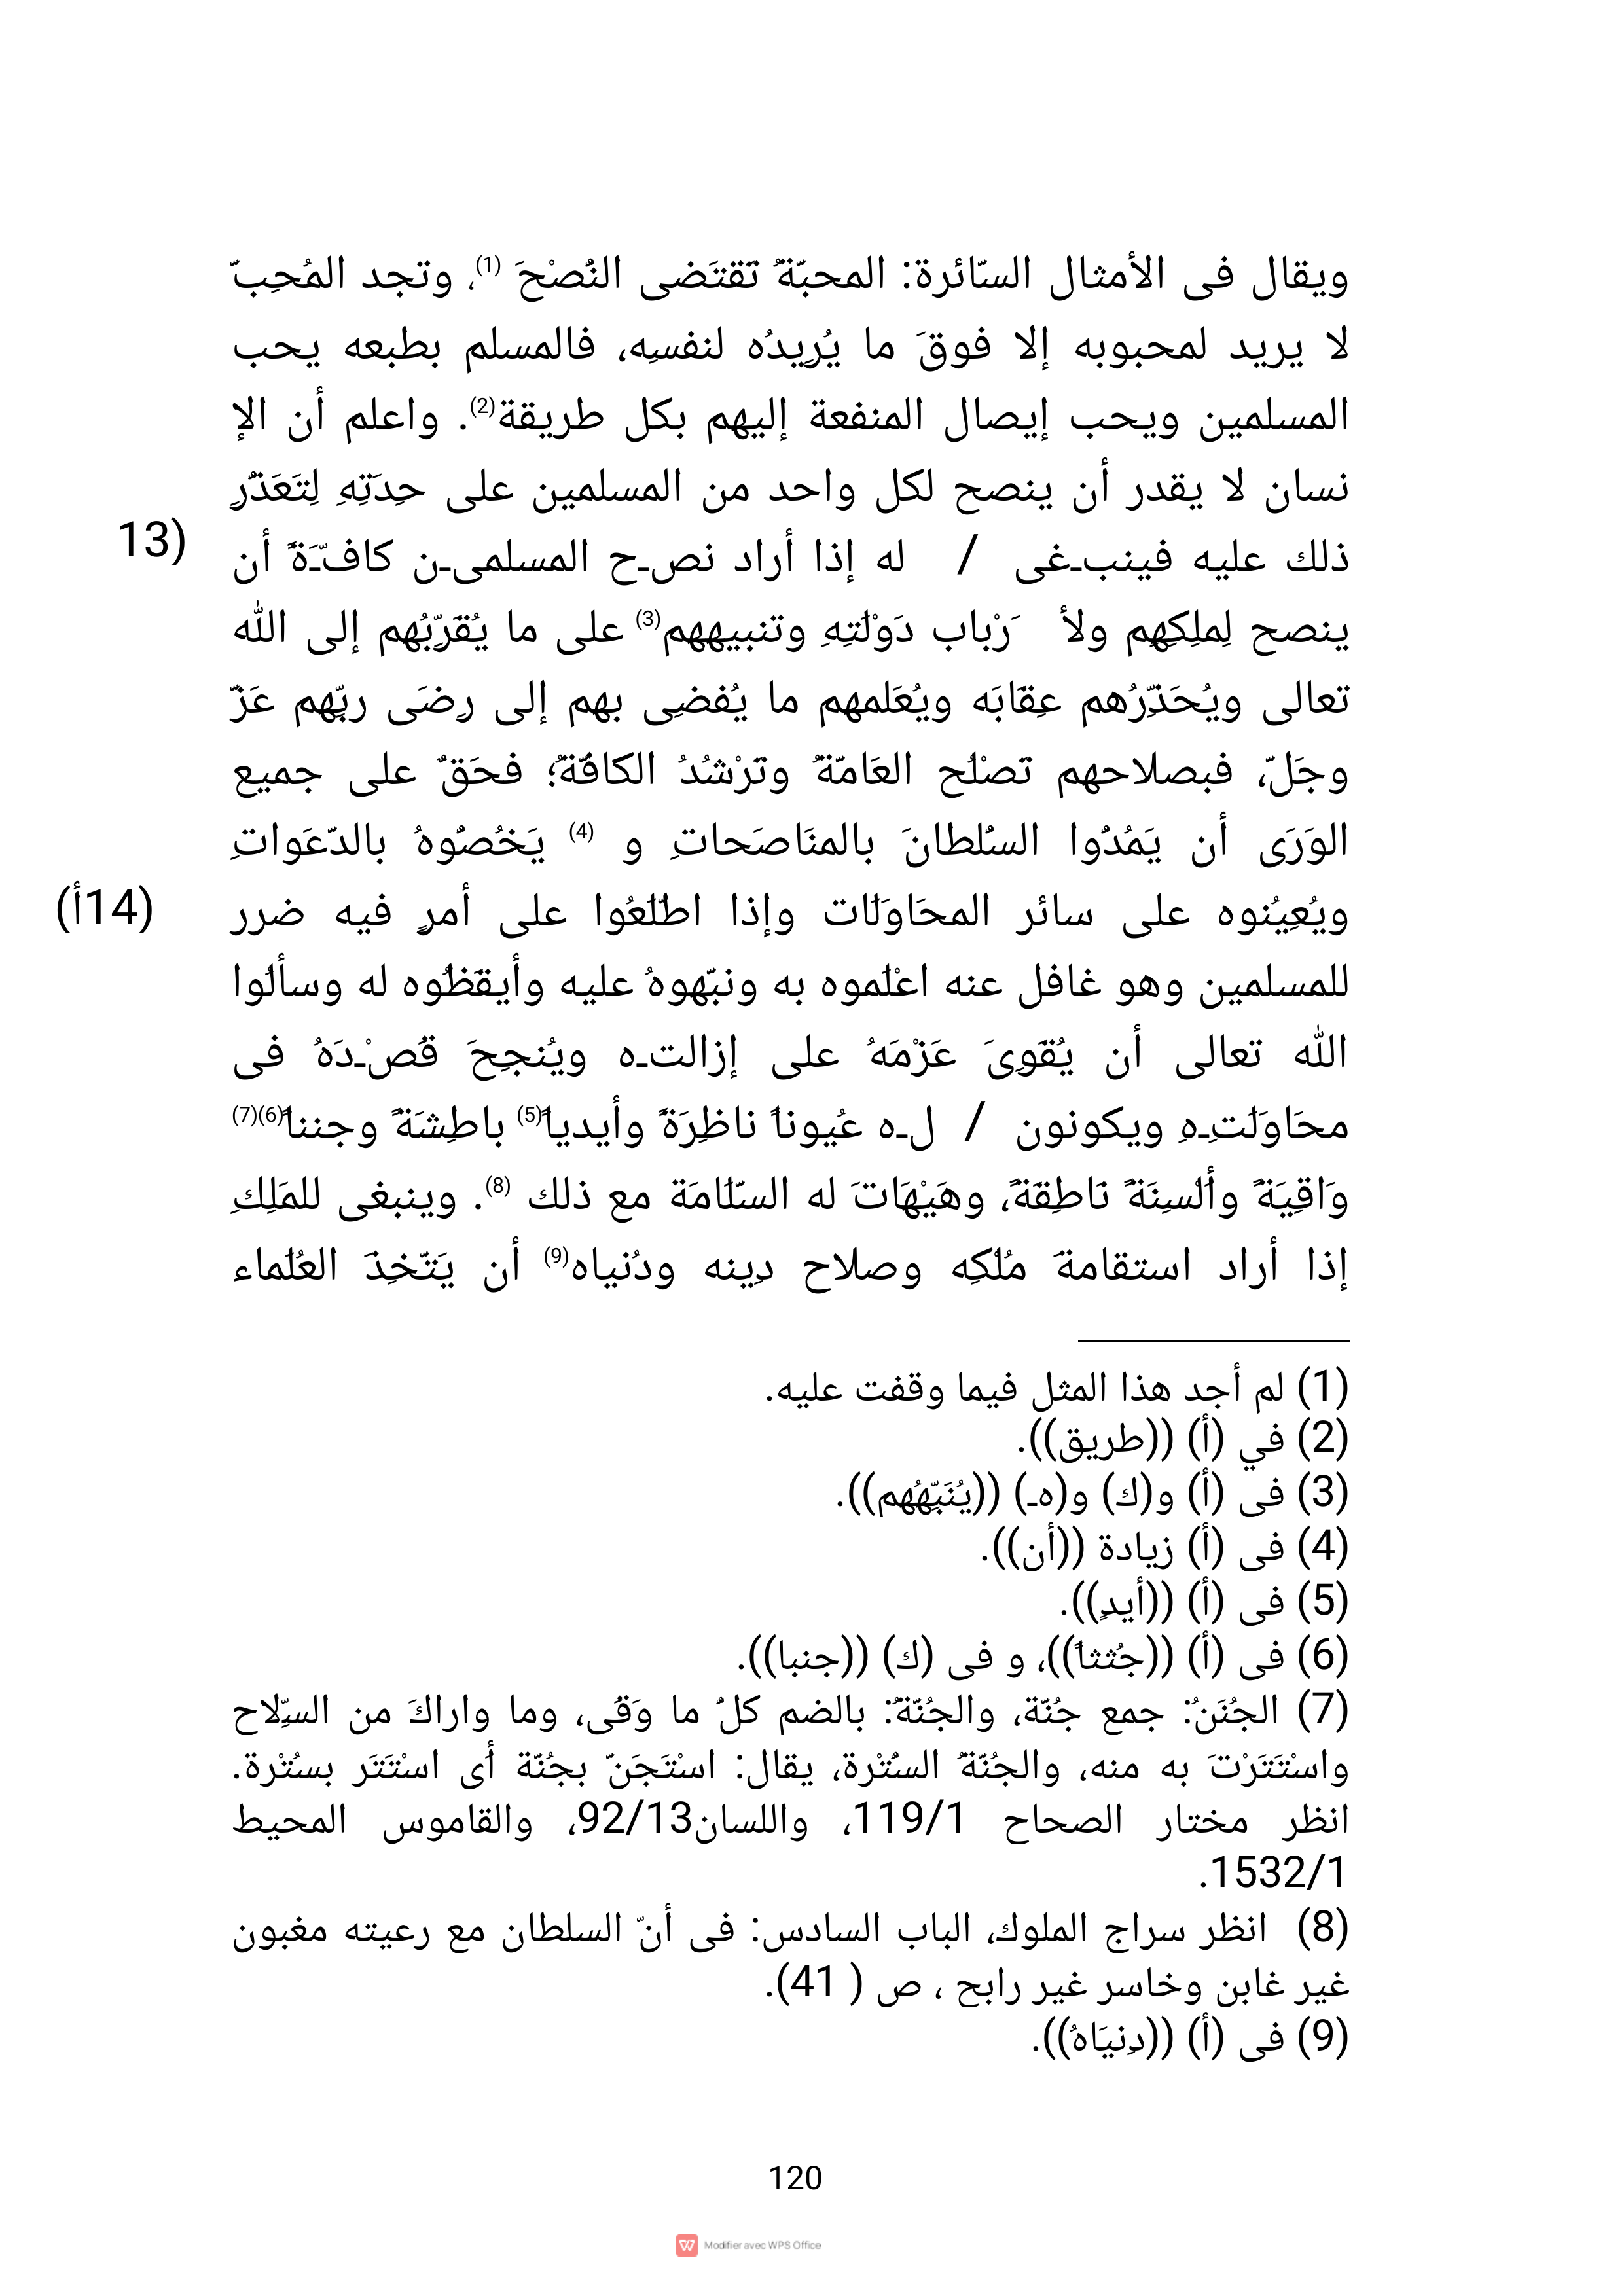 ويقال فى الأمثال السّائرة: المحبّةُ تَقتَضى النُصْحَ (1)، وتجد المُحِبّ
لا يريد لمحبوبه إلا فوقَ ما يُرِيدُه لنفسِه، فالمسلم بطبعه يحب
المسلمين ويحب إيصال المنفعة إليهم بكل طريقة(2). واعلم أن الإ
نسان لا يقدر أن ينصح لكل واحد من المسلمين على حِدَتِهِ لِتَعَذُرِ
13)
ذلك عليه فينبـغى / له إذا أراد نصـح المسلمىـن كافّـَةً أن
ينصح لِملِكِهِم ولأ َرْباب دَوْلَتِهِ وتنبيههم(3) على ما يُقَرِّبُهم إلى الله
تعالى ويُحَذِّرُهم عِقَابَه ويُعَلمهم ما يُفضِى بهم إلى رِضَى ربِّهم عَزّ
وجَلّ، فبصلاحهم تَصْلُح العَامّةُ وتَرْشُدُ الكافّةُ؛ فحَقٌ على جميع
الوَرَى أن يَمُدُوا السُلطانَ بالمنَاصَحاتِ و (4) يَخُصُوهُ بالدّعَواتِ
(14أ)
ويُعِيُنوه على سائر المحَاوَلَات وإذا اطّلَعُوا على أمرٍ فيه ضرر
للمسلمين وهو غافل عنه اعْلَموه به ونبّهوهُ عليه وأيقَظُوه له وسألُوا
الله تعالى أن يُقَوِىَ عَزْمَهُ على إزالتـه ويُنجِحَ قَصْـدَهُ فى
محَاوَلَتِـهِ ويكونون / لـه عُيوناً ناظِرَةً وأيدياً(5) باطِشَةً وجنناً(6)(7)
وَاقِيَةً وأَلْسِنَةً نَاطِقَةً، وهَيْهَاتَ له السّلَامَة مع ذلك (8). وينبغى للمَلِكِ
إذا أراد استقامةَ مُلْكِه وصلاح دِينه ودُنياه(9) أن يَتّخِذَ العُلَماء
(1) لم أجد هذا المثل فيما وقفت عليه.
(2) في (أ) ((طريق)).
(3) فى (أ) و(ك) و(هـ) ((يُنَبِّهُهم)).
(4) فى (أ) زيادة ((أن)).
(5) فى (أ) ((أيدٍ)).
(6) فى (أ) ((جُثثاً))، و فى (ك) ((جنبا)).
(7) الجُنَنُ: جمع جُنّة، والجُنّةُ: بالضم كلُ ما وَقَى، وما واراكَ من السِّلاح
واسْتَتَرْتَ به منه، والجُنّةُ السُتْرة، يقال: اسْتَجَنّ بجُنّة أَى اسْتَتَر بسُتْرة.
انظر مختار الصحاح 119/1، واللسان92/13، والقاموس المحيط
1532/1.
(8) انظر سراج الملوك، الباب السادس: فى أنّ السلطان مع رعيته مغبون
غير غابن وخاسر غير رابح ، ص ( 41).
(9) فى (أ) ((دِنيَاهُ)).
120
Modifier avec WPS Office